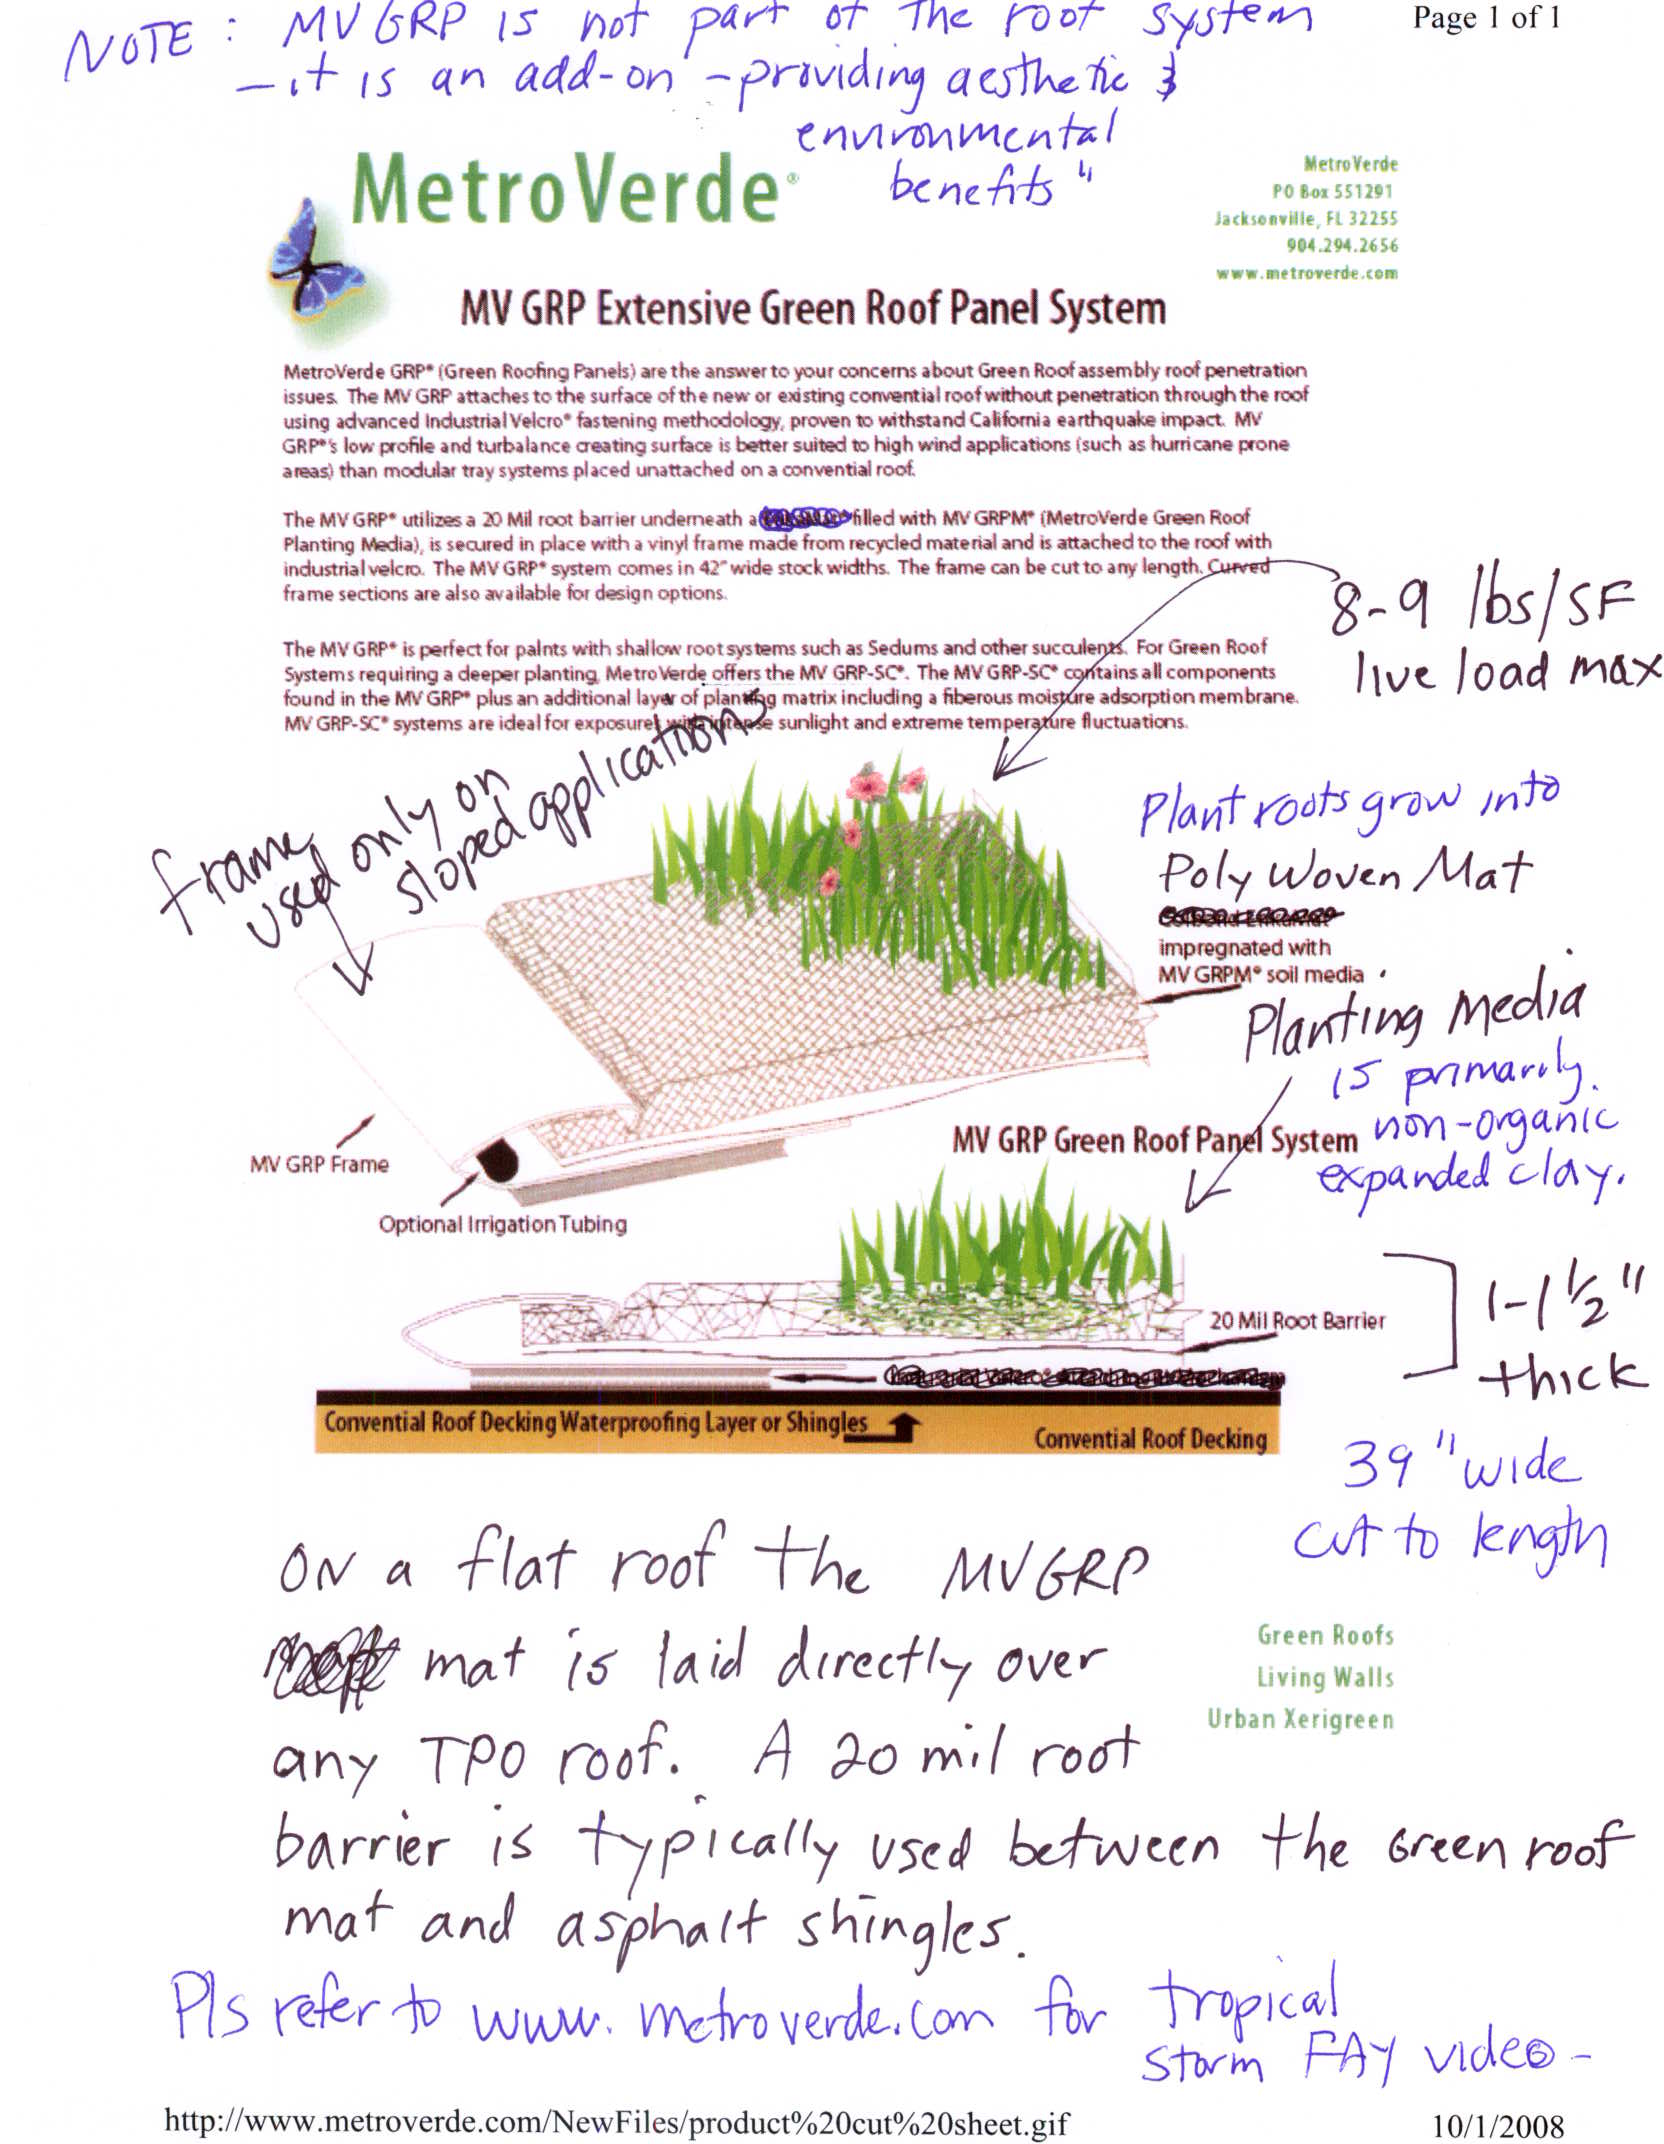 Page 1 of 1
NOTE: MV GRP is not part of the roof system
– it is an add-on – providing aesthetic &
environmental
benefits"
MetroVerde®
MetroVerde
PO Box 551291
Jacksonville, FL 32255
904.294.2656
www.metroverde.com
MV GRP Extensive Green Roof Panel System
MetroVerde GRP® (Green Roofing Panels) are the answer to your concerns about Green Roof assembly roof penetration
issues. The MV GRP attaches to the surface of the new or existing convential roof without penetration through the roof
using advanced Industrial Velcro® fastening methodology, proven to withstand California earthquake impact. MV
GRP®'s low profile and turbalance creating surface is better suited to high wind applications (such as hurricane prone
areas) than modular tray systems placed unattached on a convential roof.
The MV GRP® utilizes a 20 Mil root barrier underneath a filled with MV GRPM® (MetroVerde Green Roof
Planting Media), is secured in place with a vinyl frame made from recycled material and is attached to the roof with
industrial velcro. The MV GRP® system comes in 42" wide stock widths. The frame can be cut to any length. Curved
frame sections are also available for design options.
8-9 lbs/SF
live load max
The MV GRP® is perfect for palnts with shallow root systems such as Sedums and other succulents. For Green Roof
Systems requiring a deeper planting, MetroVerde offers the MV GRP-SC®. The MV GRP-SC® contains all components
found in the MV GRP® plus an additional layer of planting matrix including a fiberous moisture adsorption membrane.
MV GRP-SC® systems are ideal for exposure with intense sunlight and extreme temperature fluctuations.
frame
used only on
sloped applications
Plant roots grow into
Poly Woven Mat
impregnated with
MV GRPM® soil media
Planting Media
is primarily
non-organic
expanded clay.
MV GRP Frame
Optional Irrigation Tubing
MV GRP Green Roof Panel System
20 Mil Root Barrier
1-1 1/2"
thick
Convential Roof Decking Waterproofing Layer or Shingles
Convential Roof Decking
39" wide
cut to length
ON a flat roof the MVGRP
mat is laid directly over
any TPO roof. A 20 mil root
barrier is typically used between the Green roof
mat and asphalt shingles.
Green Roofs
Living Walls
Urban Xerigreen
Pls refer to www.metroverde.com for tropical
storm FAY video –
http://www.metroverde.com/NewFiles/product%20cut%20sheet.gif
10/1/2008